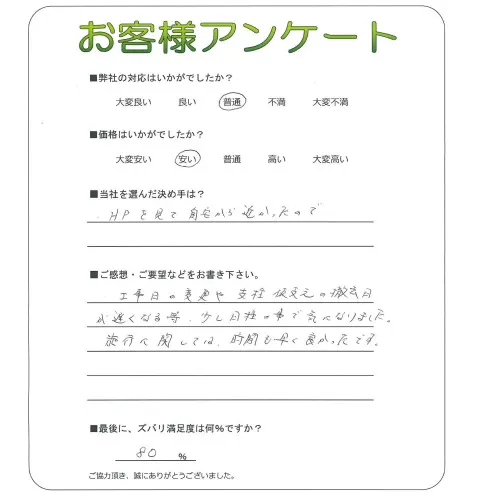 お客様アンケート
■弊社の対応はいかがでしたか？
大変良い 良い 普通 不満 大変不満
■価格はいかがでしたか？
大変安い 安い 普通 高い 大変高い
■当社を選んだ決め手は？
HPを見て自宅から近かったので
■ご感想・ご要望などをお書き下さい。
工事日の変更や支柱仮支えの撤去日
が遅くなる等、少し日程の事で気になりました。
施行に関しては、時間も早く良かったです。
■最後に、ズバリ満足度は何%ですか？
80 %
ご協力頂き、誠にありがとうございました。